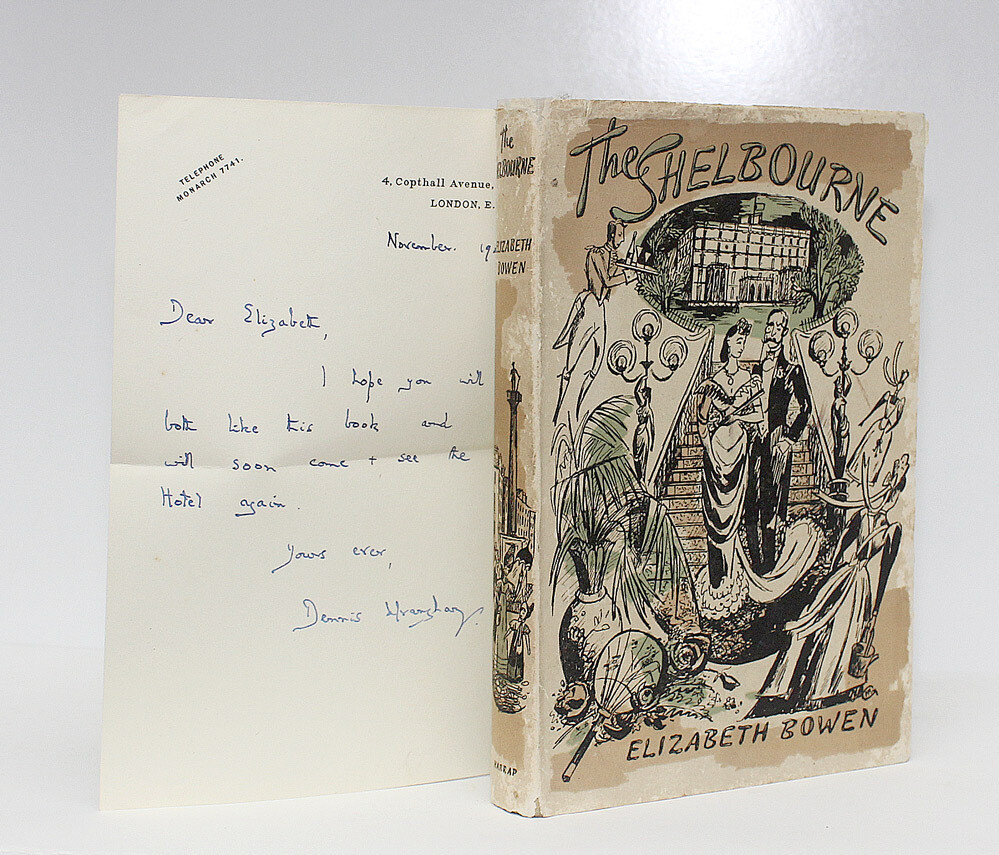 TELEPHONE
MONARCH 7741.
4, Copthall Avenue,
LONDON, E.
November. 19
Dear Elizabeth,
I hope you will
both like this book and
will soon come + see the
Hotel again.
Yours ever,
Dennis
The
SHELBOURNE
ELIZABETH
BOWEN
HARRAP
The SHELBOURNE
ELIZABETH BOWEN